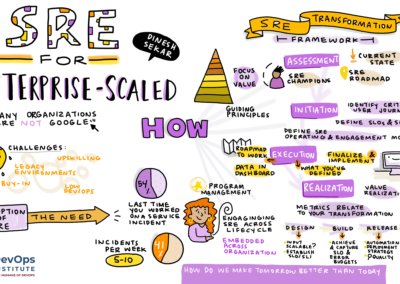 SRE
FOR
TERPRISE-SCALED
DINESH
SEKAR
ANY ORGANIZATIONS
RE NOT GOOGLE
CHALLENGES:
UPSKILLING
LEGACY
ENVIRONMENTS
BUY-IN
LOW
DEVOPS
PTION
OF
RE
THE NEED
DevOps
INSTITUTE
HUMANS OF DEVOPS
HOW
54
LAST TIME
YOU WORKED
ON A SERVICE
INCIDENT
INCIDENTS
PER WEEK
5-10
41
SRE TRANSFORMATION
FRAMEWORK
FOCUS
ON
VALUE
GUIDING
PRINCIPLES
ASSESSMENT
SRE
CHAMPIONS
CURRENT
STATE
SRE
ROADMAP
INITIATION
IDENTIFY CRITI
USER JOURN
DEFINE SLOs & SL
DEFINE SRE
OPERATING & ENGAGEMENT MO
ROADMAP
TO WORK
EXECUTION
FINALIZE &
IMPLEMENT
DATA IN
DASHBOARD
WHAT YOU'VE
DEFINED
PROGRAM
MANAGEMENT
REALIZATION
VALUE REALIZA
METRICS RELATE
TO YOUR TRANSFORMATION
ENGAGINGING
SRE ACROSS
LIFECYCLE
EMBEDDED
ACROSS
ORGANIZATION
DESIGN
INPUT
SCALABLE?
ESTABLISH
SLO/SLI
BUILD
ACHIEVE
& CAPTURE
SLO &
ERROR
BUDGETS
RELEASE
AUTOMATION
DEPLOYMENT
STRATEGY
HOW DO WE MAKE TOMORROW BETTER THAN TODAY